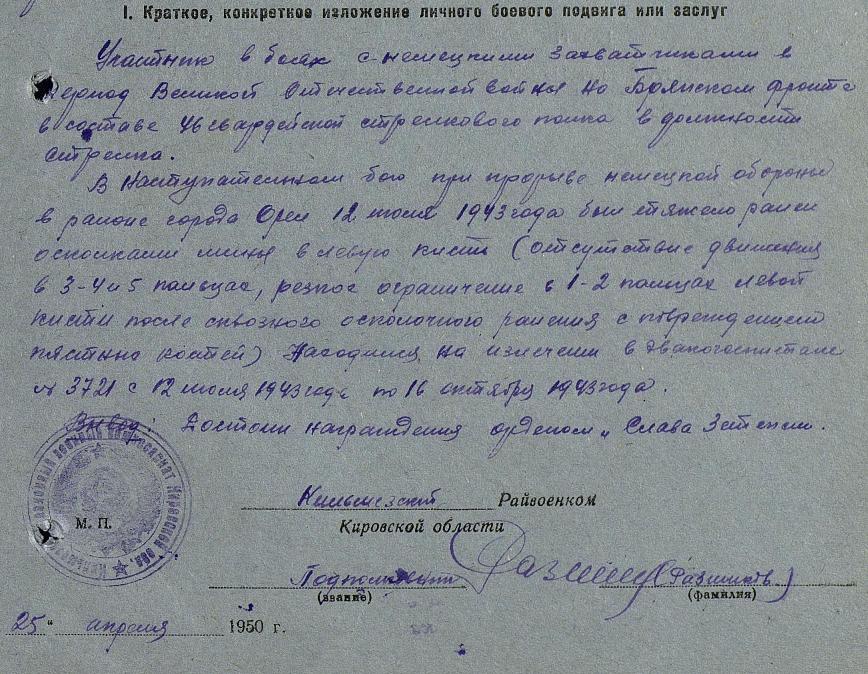 I. Краткое, конкретное изложение личного боевого подвига или заслуг
Участник в боях с немецкими захватчиками в
период Великой Отечественной войны на Брянском фронте
в составе гвардейской стрелкового полка в должности
стрелка.
В наступательном бою при прорыве немецкой обороны
в районе города Орел 12 июля 1943 года был тяжело ранен
осколками мины в левую кисть (отсутствие движения
в 3-4 и 5 пальцах, резкое ограничение в 1-2 пальцах левой
кисти после сквозного осколочного ранения с повреждением
пястных костей) Находился на излечении в эвакогоспитале
№ 3721 с 12 июля 1943 года по 16 октября 1943 года.
Вывод: Достоин награждения орденом „Слава 3 степени.
Кильмезский Райвоенком
М. П.
Кировской области
Подполковник
(звание)
(фамилия)
25 " апреля 1950 г.